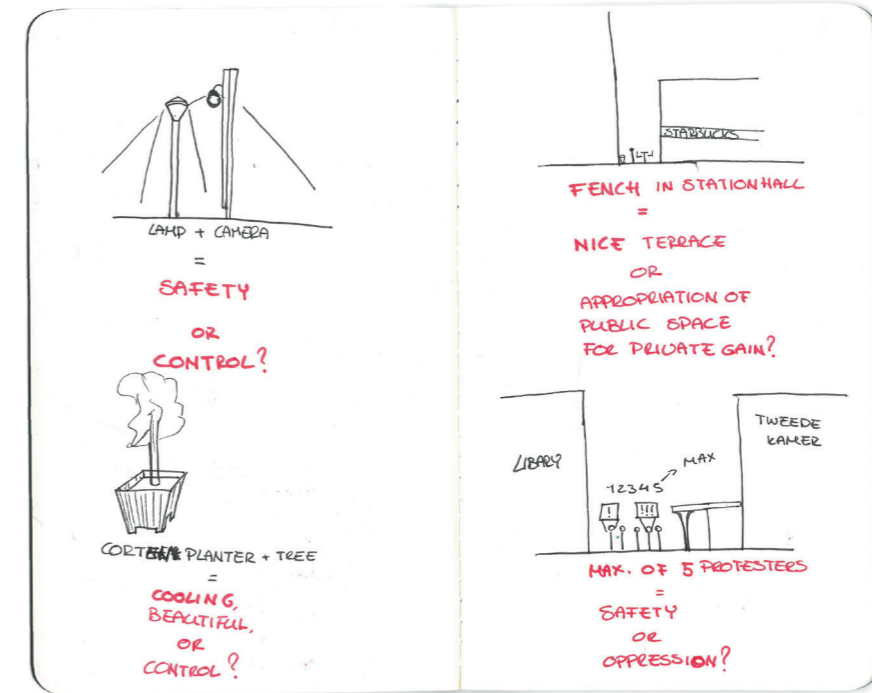 LAMP + CAMERA
=
SAFETY
OR
CONTROL?
CORTEN PLANTER + TREE
=
COOLING,
BEAUTIFUL,
OR
CONTROL?
STARBUCKS
FENCH IN STATIONHALL
=
NICE TERRACE
OR
APPROPRIATION OF
PUBLIC SPACE
FOR PRIVATE GAIN?
LIBARY
TWEEDE
KAMER
MAX
12345
! !!!
MAX. OF 5 PROTESTERS
=
SAFETY
OR
OPPRESSION?